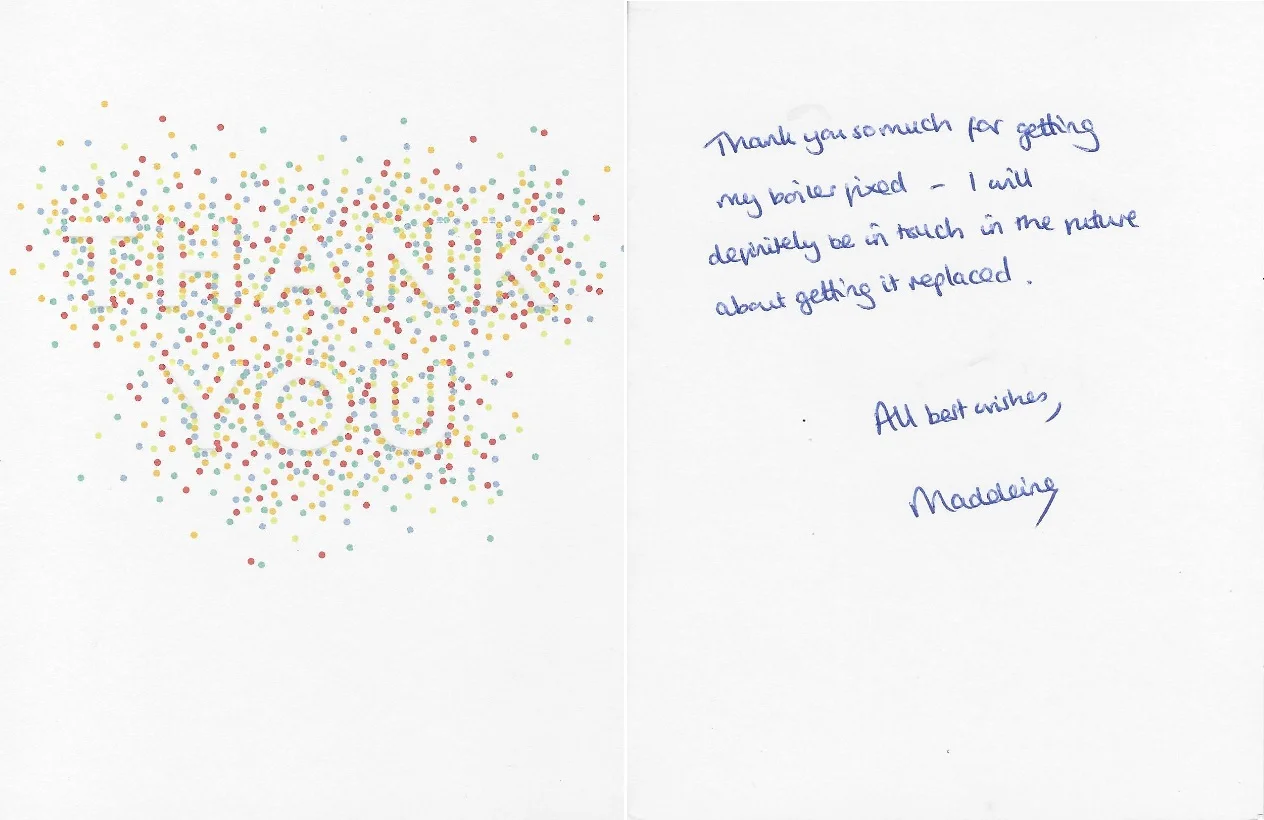 THANK
YOU
Thank you so much for getting
my boiler fixed – I will
definitely be in touch in the future
about getting it replaced.
All best wishes,
Madeleine